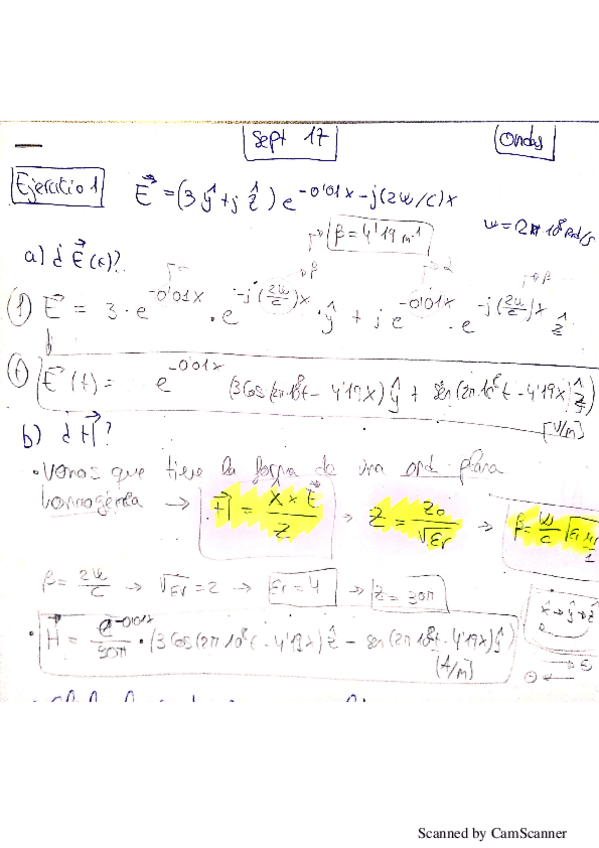 Sept 17
Ondas
Ejercicio 1 E⃗ = (3ŷ + jẑ) e^{-0'01x - j(2ω/c)x}
ω = 2π 10⁸ rad/s
β = 4'19 m⁻¹
a) ¿ E⃗(t)?
α β α β
(f) E⃗ = 3 · e^{-0'01x} · e^{-j(2ω/c)x} · ŷ + j e^{-0'01x} · e^{-j(2ω/c)x} ẑ
(t) E⃗(t) = e^{-0'01x} (3cos(2π·10⁸t - 4'19x) ŷ + sen(2π·10⁸t - 4'19x) ẑ)
[V/m]
b) ¿ H⃗?
· Vemos que tiene la forma de una ond plana
homogénea → H⃗ = x̂ × E⃗ / Z → Z = Z₀ / √εr → β = ω/c √εr μr
β = 2ω/c → √εr = 2 → εr = 4 → Z = 30π
x̂ → ŷ → ẑ
· H⃗ = e^{-0'01x} / 30π · (3cos(2π 10⁸t - 4'19x) ẑ - sen(2π 10⁸t - 4'19x) ŷ)
(A/m)
Scanned by CamScanner